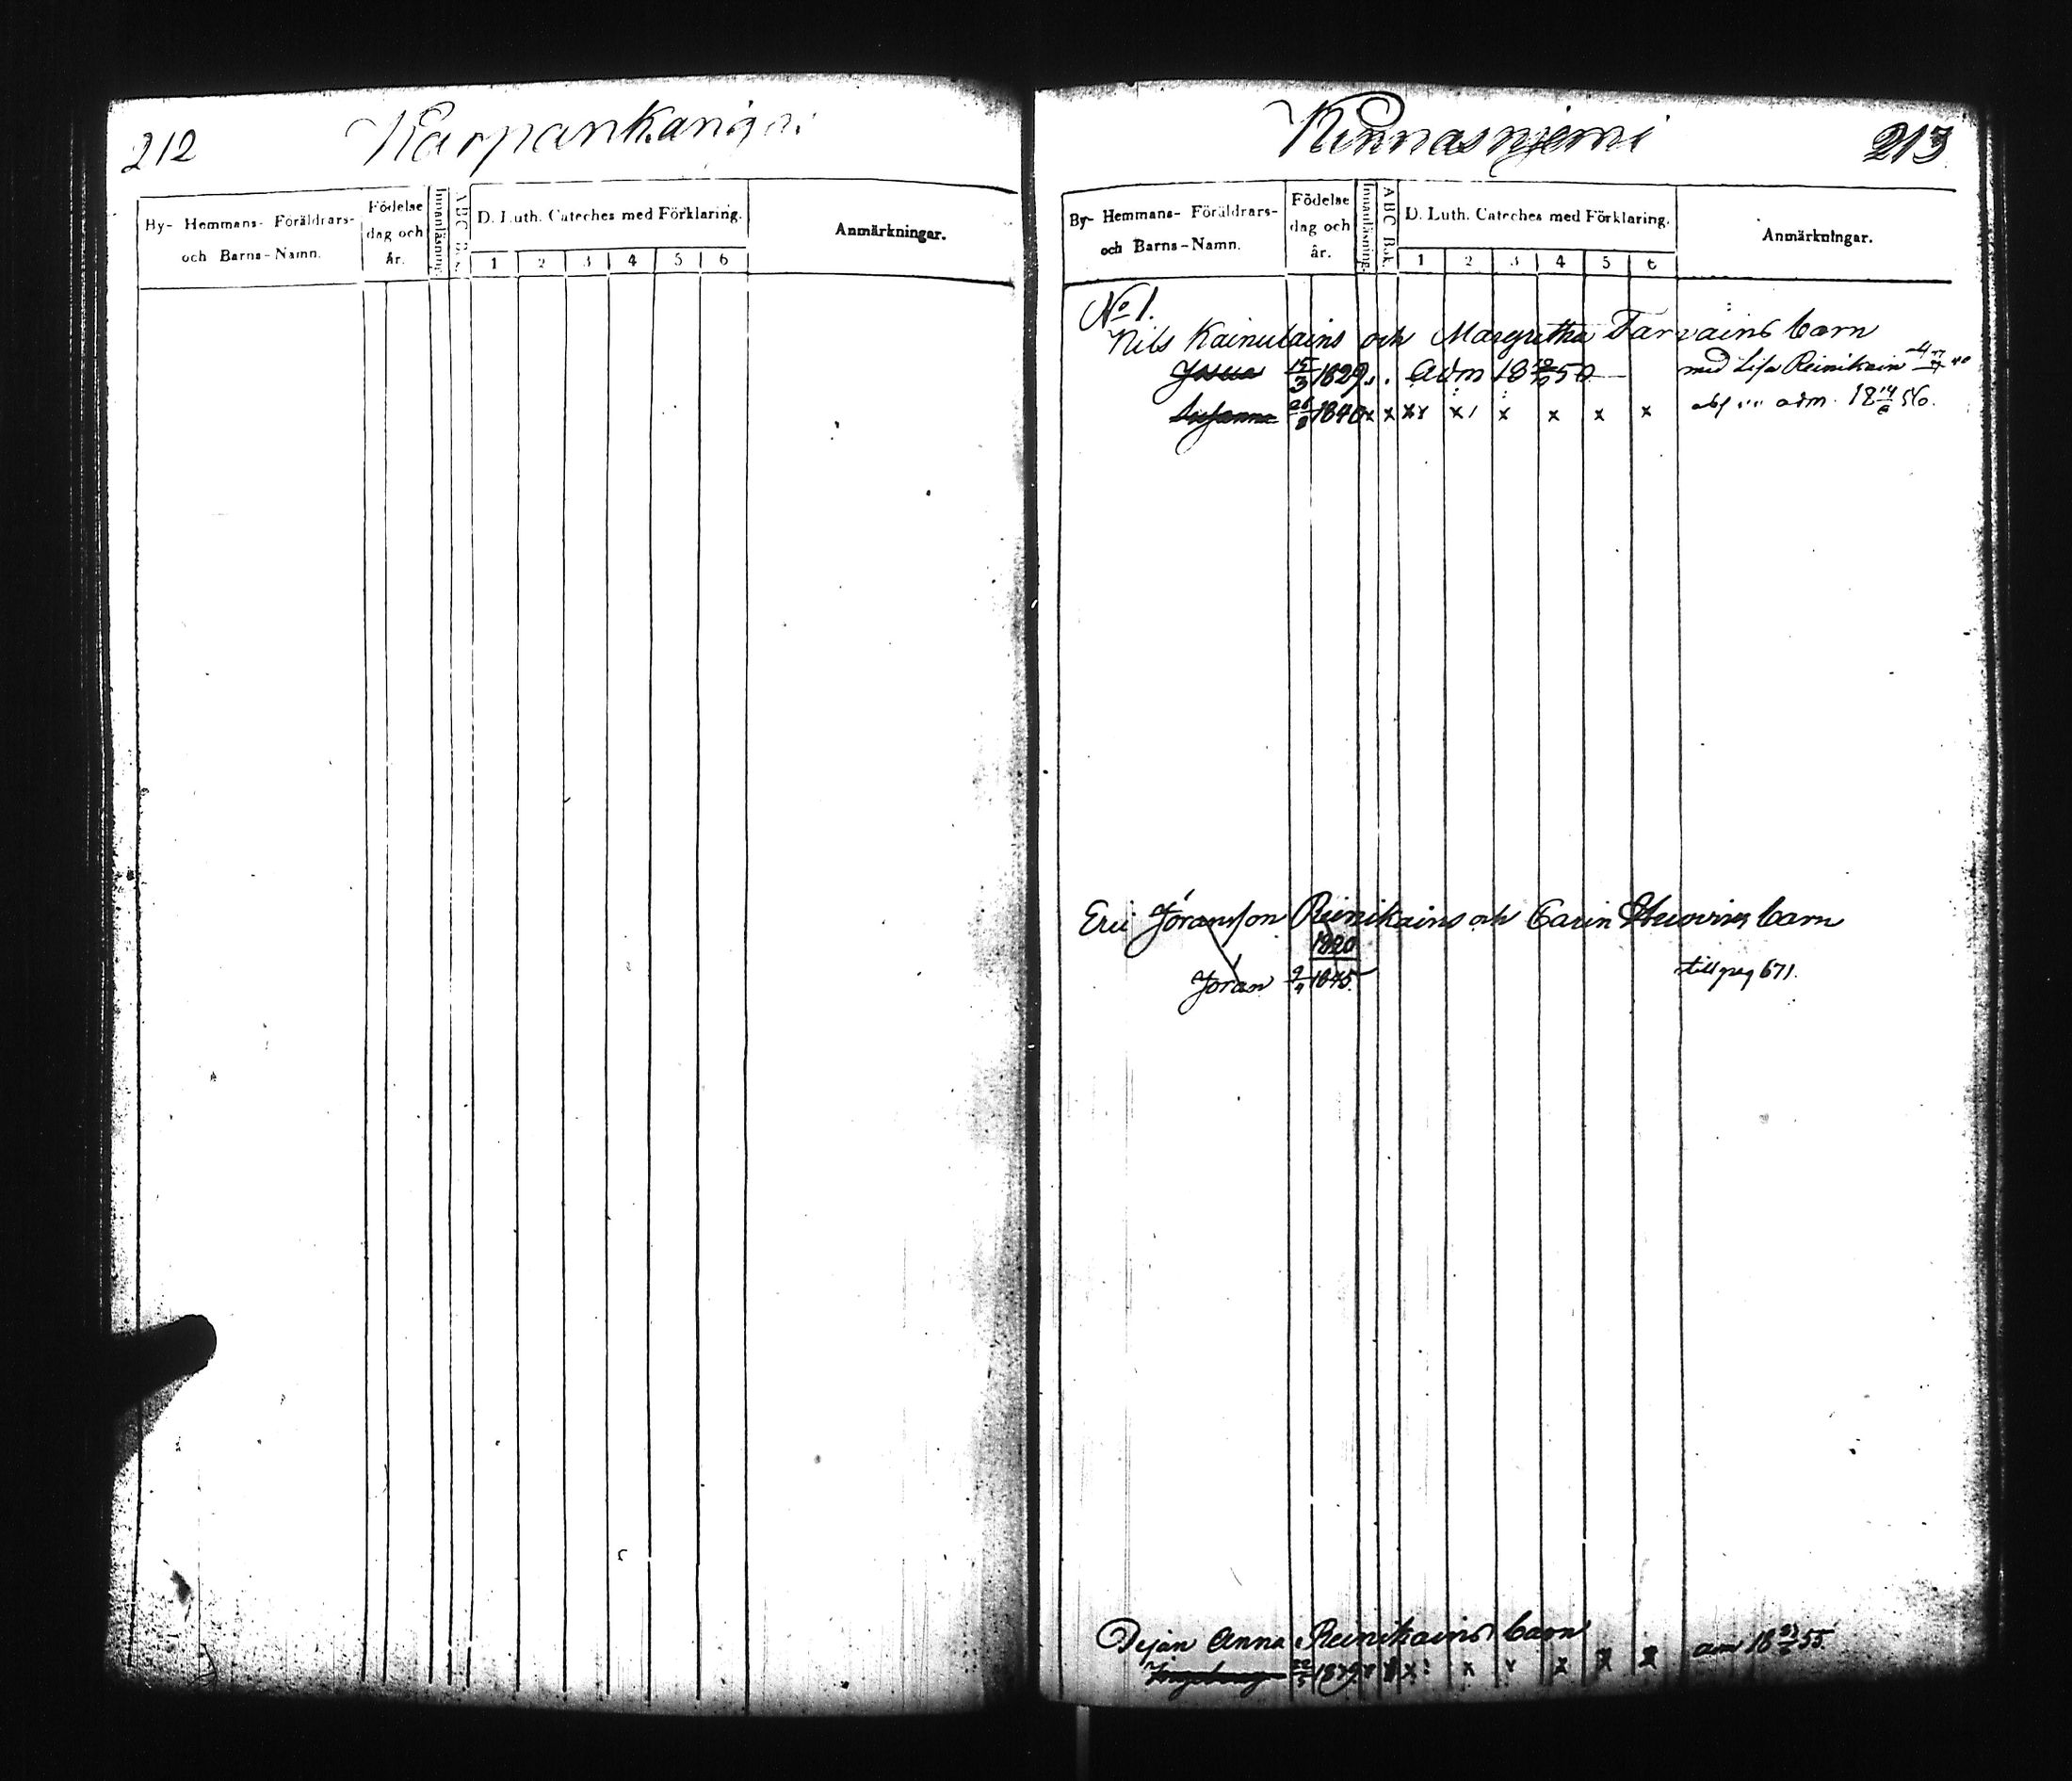 212
Karpankangas
By- Hemmans- Föräldrars- och Barns-Namn.
Födelse dag och år.
Innanläsning.
ABC Bok.
D. Luth. Cateches med Förklaring.
1 2 3 4 5 6
Anmärkningar.
Kinnasniemi
213
By- Hemmans- Föräldrars- och Barns-Namn.
Födelse dag och år.
Innanläsning.
ABC Bok.
D. Luth. Cateches med Förklaring.
1 2 3 4 5 6
Anmärkningar.
No 1.
Nils Kainulains och Margretha Tarvains barn
Josua 15/3 1829 Adm 18 50 med Lisa Reinikain
Susanna 1840 x x xx x x x x x adm. 18 14/6 56.
Eric Jöransson Reinikains och Carin barn
1820
Jöran 9/9 1845. till pag 671.
Pejan Anna Reinikains barn
Ingeborg 1839 x x x x x x 18 55